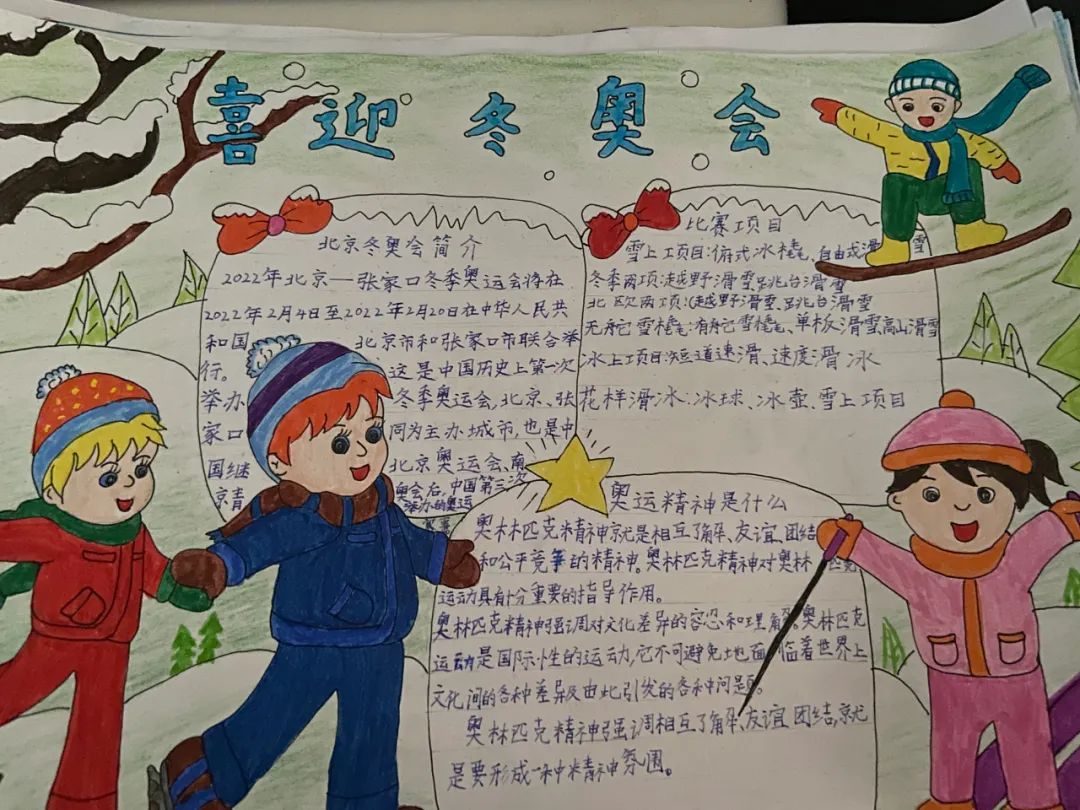 喜迎冬奥会
北京冬奥会简介
2022年北京—张家口冬季奥运会将在
2022年2月4日至2022年2月20日在中华人民共
和国 北京市和张家口市联合举
行。 这是中国历史上第一次
举办 冬季奥运会,北京、张
家口 同为主办城市,也是中
国继 北京奥运会、南
京青 奥会后,中国第三次
举办的奥运
赛事
比赛项目
雪上项目:俯式冰橇,自由式滑雪
冬季两项(越野滑雪,跳台滑雪
北欧两项(越野滑雪,跳台滑雪
无舵雪橇;有舵雪橇、单板滑雪,高山滑雪
冰上项目:短道速滑、速度滑冰
花样滑冰:冰球、冰壶、雪上项目
奥运精神是什么
奥林匹克精神就是相互了解、友谊、团结
和公平竞争的精神。奥林匹克精神对奥林匹克
运动具有十分重要的指导作用。
奥林匹克精神强调对文化差异的容忍和理解。奥林匹克
运动是国际性的运动,它不可避免地面临着世界上
文化间的各种差异及由此引发的各种问题。
奥林匹克精神强调相互了解、友谊、团结,就
是要形成一种精神氛围。